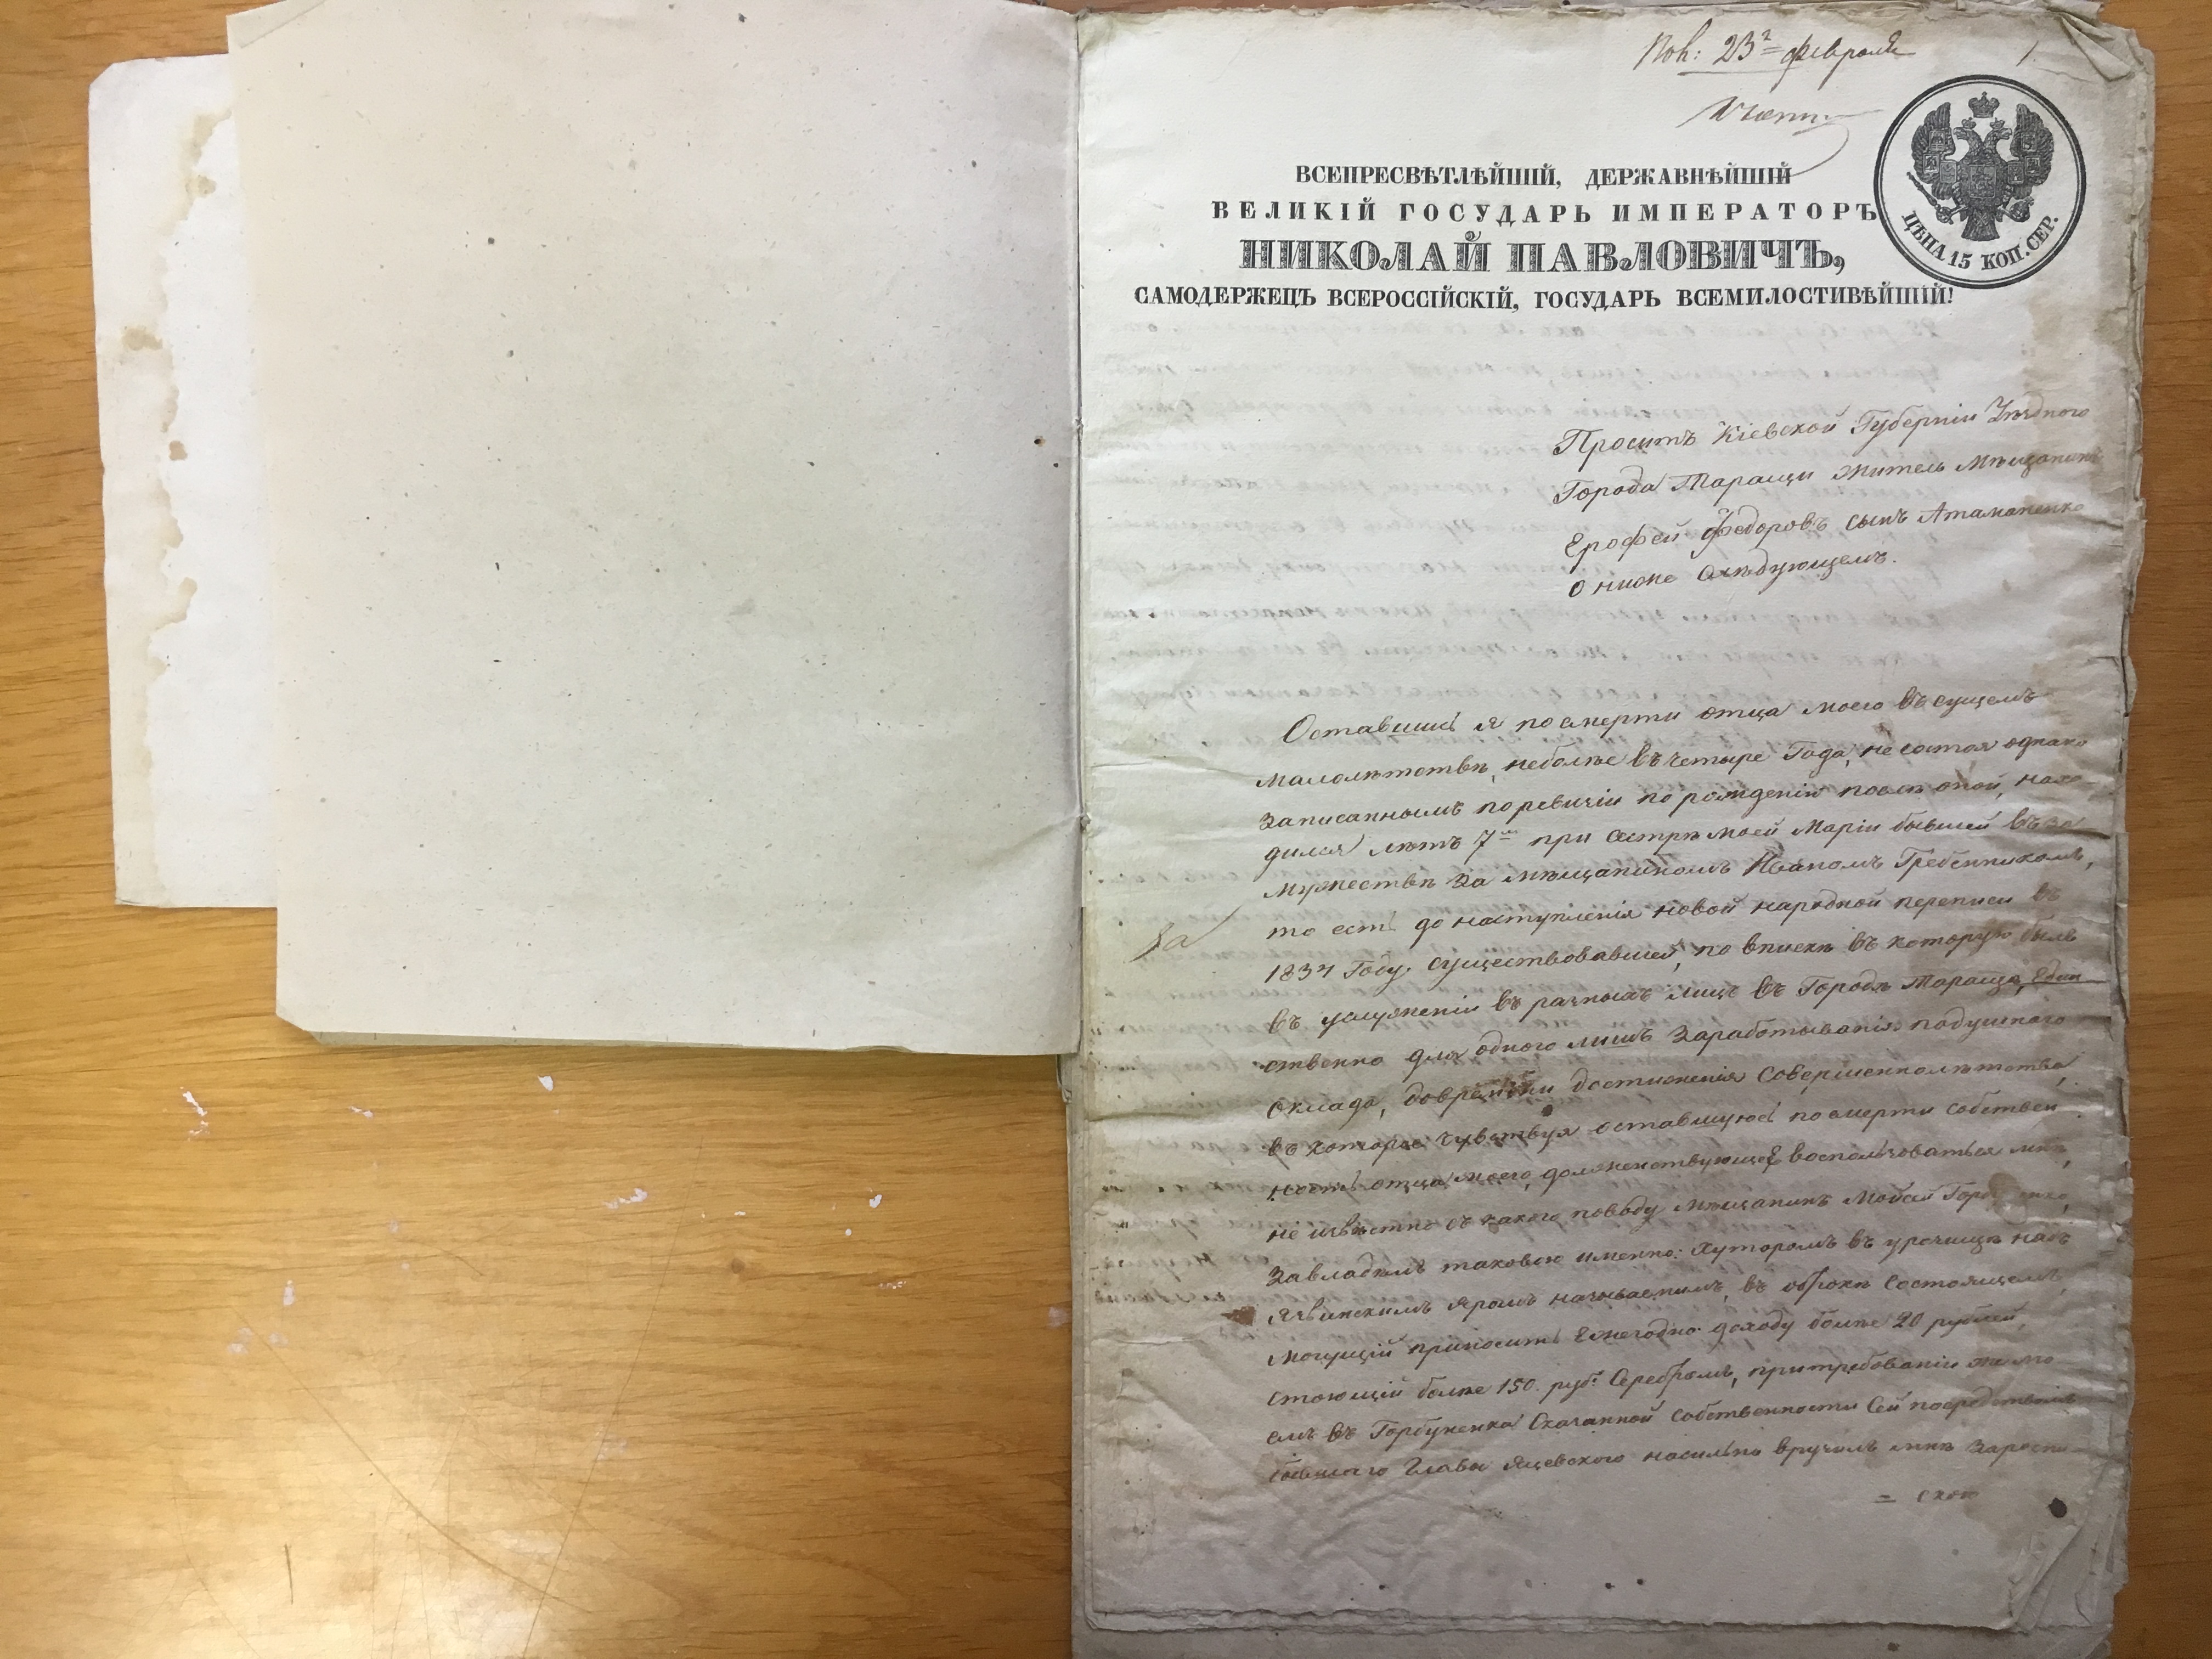 23 февраля
1.
ВСЕПРЕСВѢТЛѢЙШІЙ, ДЕРЖАВНѢЙШІЙ
ВЕЛИКІЙ ГОСУДАРЬ ИМПЕРАТОРЪ
НИКОЛАЙ ПАВЛОВИЧЪ,
САМОДЕРЖЕЦЪ ВСЕРОССІЙСКІЙ, ГОСУДАРЬ ВСЕМИЛОСТИВѢЙШІЙ!
ЦѢНА 15 КОП. СЕР.
Проситъ Кіевской Губерніи Уѣздного
Города Таращи житель Мѣщанинъ
Ерофей Федоровъ сынъ Атаманенко
о ниже слѣдующемъ.
Оставшись я по смерти отца моего въ сущемъ
малолѣтствѣ, неболѣе въ четыре Года, не состоя однако
записаннымъ по ревизіи по рожденіи послѣ оной, нахо-
дился лѣтъ 7 при сестрѣ моей Маріи бывшей въ за
мужествѣ за мѣщаниномъ Иваномъ Гребенникомъ,
то есть до наступленія новой народной переписи въ
1834 Году существовавшей, по впискѣ въ которую былъ
въ услуженіи въ разныхъ лицъ въ Городѣ Тараще, един
ственно для одного лишь заработыванія подушного
оклада, до времени достиженія совершеннолѣтства,
въ которое чувствуя оставшуюсь по смерти собствен
ность отца моего, долженствующеЕ воспользоваться мнѣ,
не извѣстно съ какого поводу мѣщанинъ Мойсей
завладѣлъ таковою именно: хуторомъ въ урочищѣ надъ
яромъ называемымъ, въ оброкѣ состоящемъ,
могущій приносить Ежегодно доходу болѣе 20 рублей,
стоющій болѣе 150 руб. Серебромъ, при требованіи же мо
емъ въ Горбуненка Сказанной собственности Сей посредствомъ
бывшаго Главы Яцевского насильно вручилъ мнѣ